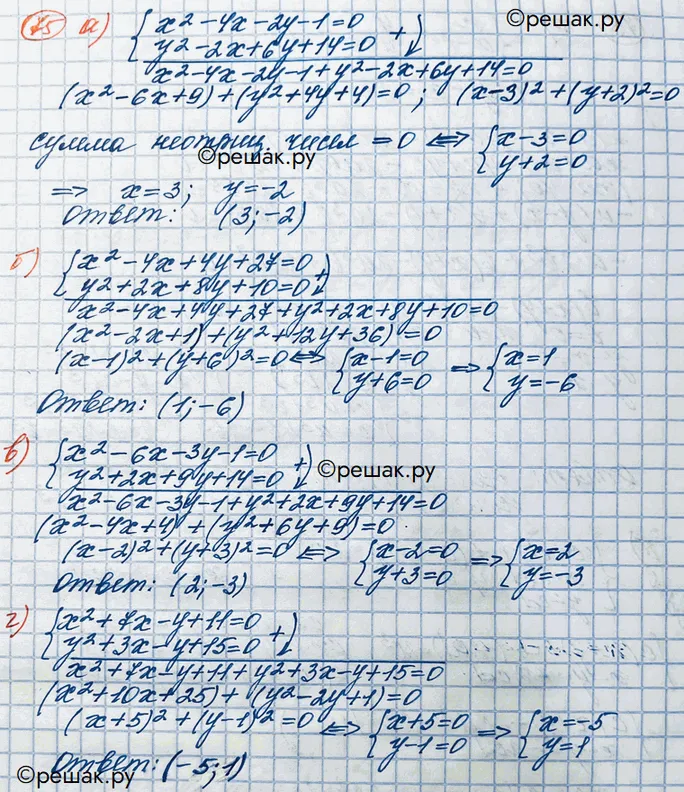 75 а) { x² - 4x - 2y - 1 = 0
y² - 2x + 6y + 14 = 0 + ↓
©решак.ру
x² - 4x - 2y - 1 + y² - 2x + 6y + 14 = 0
(x² - 6x + 9) + (y² + 4y + 4) = 0 ; (x-3)² + (y+2)² = 0
сумма неотриц. чисел = 0 ⟺ { x - 3 = 0
y + 2 = 0
©решак.ру
⟹ x = 3; y = -2
Ответ: (3; -2)
б) { x² - 4x + 4y + 27 = 0
y² + 2x + 8y + 10 = 0 + ↓
x² - 4x + 4y + 27 + y² + 2x + 8y + 10 = 0
(x² - 2x + 1) + (y² + 12y + 36) = 0
(x-1)² + (y+6)² = 0 ⟺ { x - 1 = 0 ⟹ { x = 1
y + 6 = 0 y = -6
Ответ: (1; -6)
в) { x² - 6x - 3y - 1 = 0
y² + 2x + 9y + 14 = 0 + ↓
©решак.ру
x² - 6x - 3y - 1 + y² + 2x + 9y + 14 = 0
(x² - 4x + 4) + (y² + 6y + 9) = 0
(x-2)² + (y+3)² = 0 ⟺ { x - 2 = 0 ⟹ { x = 2
y + 3 = 0 y = -3
Ответ: (2; -3)
г) { x² + 7x - y + 11 = 0
y² + 3x - y + 15 = 0 + ↓
x² + 7x - y + 11 + y² + 3x - y + 15 = 0
(x² + 10x + 25) + (y² - 2y + 1) = 0
(x+5)² + (y-1)² = 0 ⟺ { x + 5 = 0 ⟹ { x = -5
y - 1 = 0 y = 1
Ответ: (-5; 1)
©решак.ру